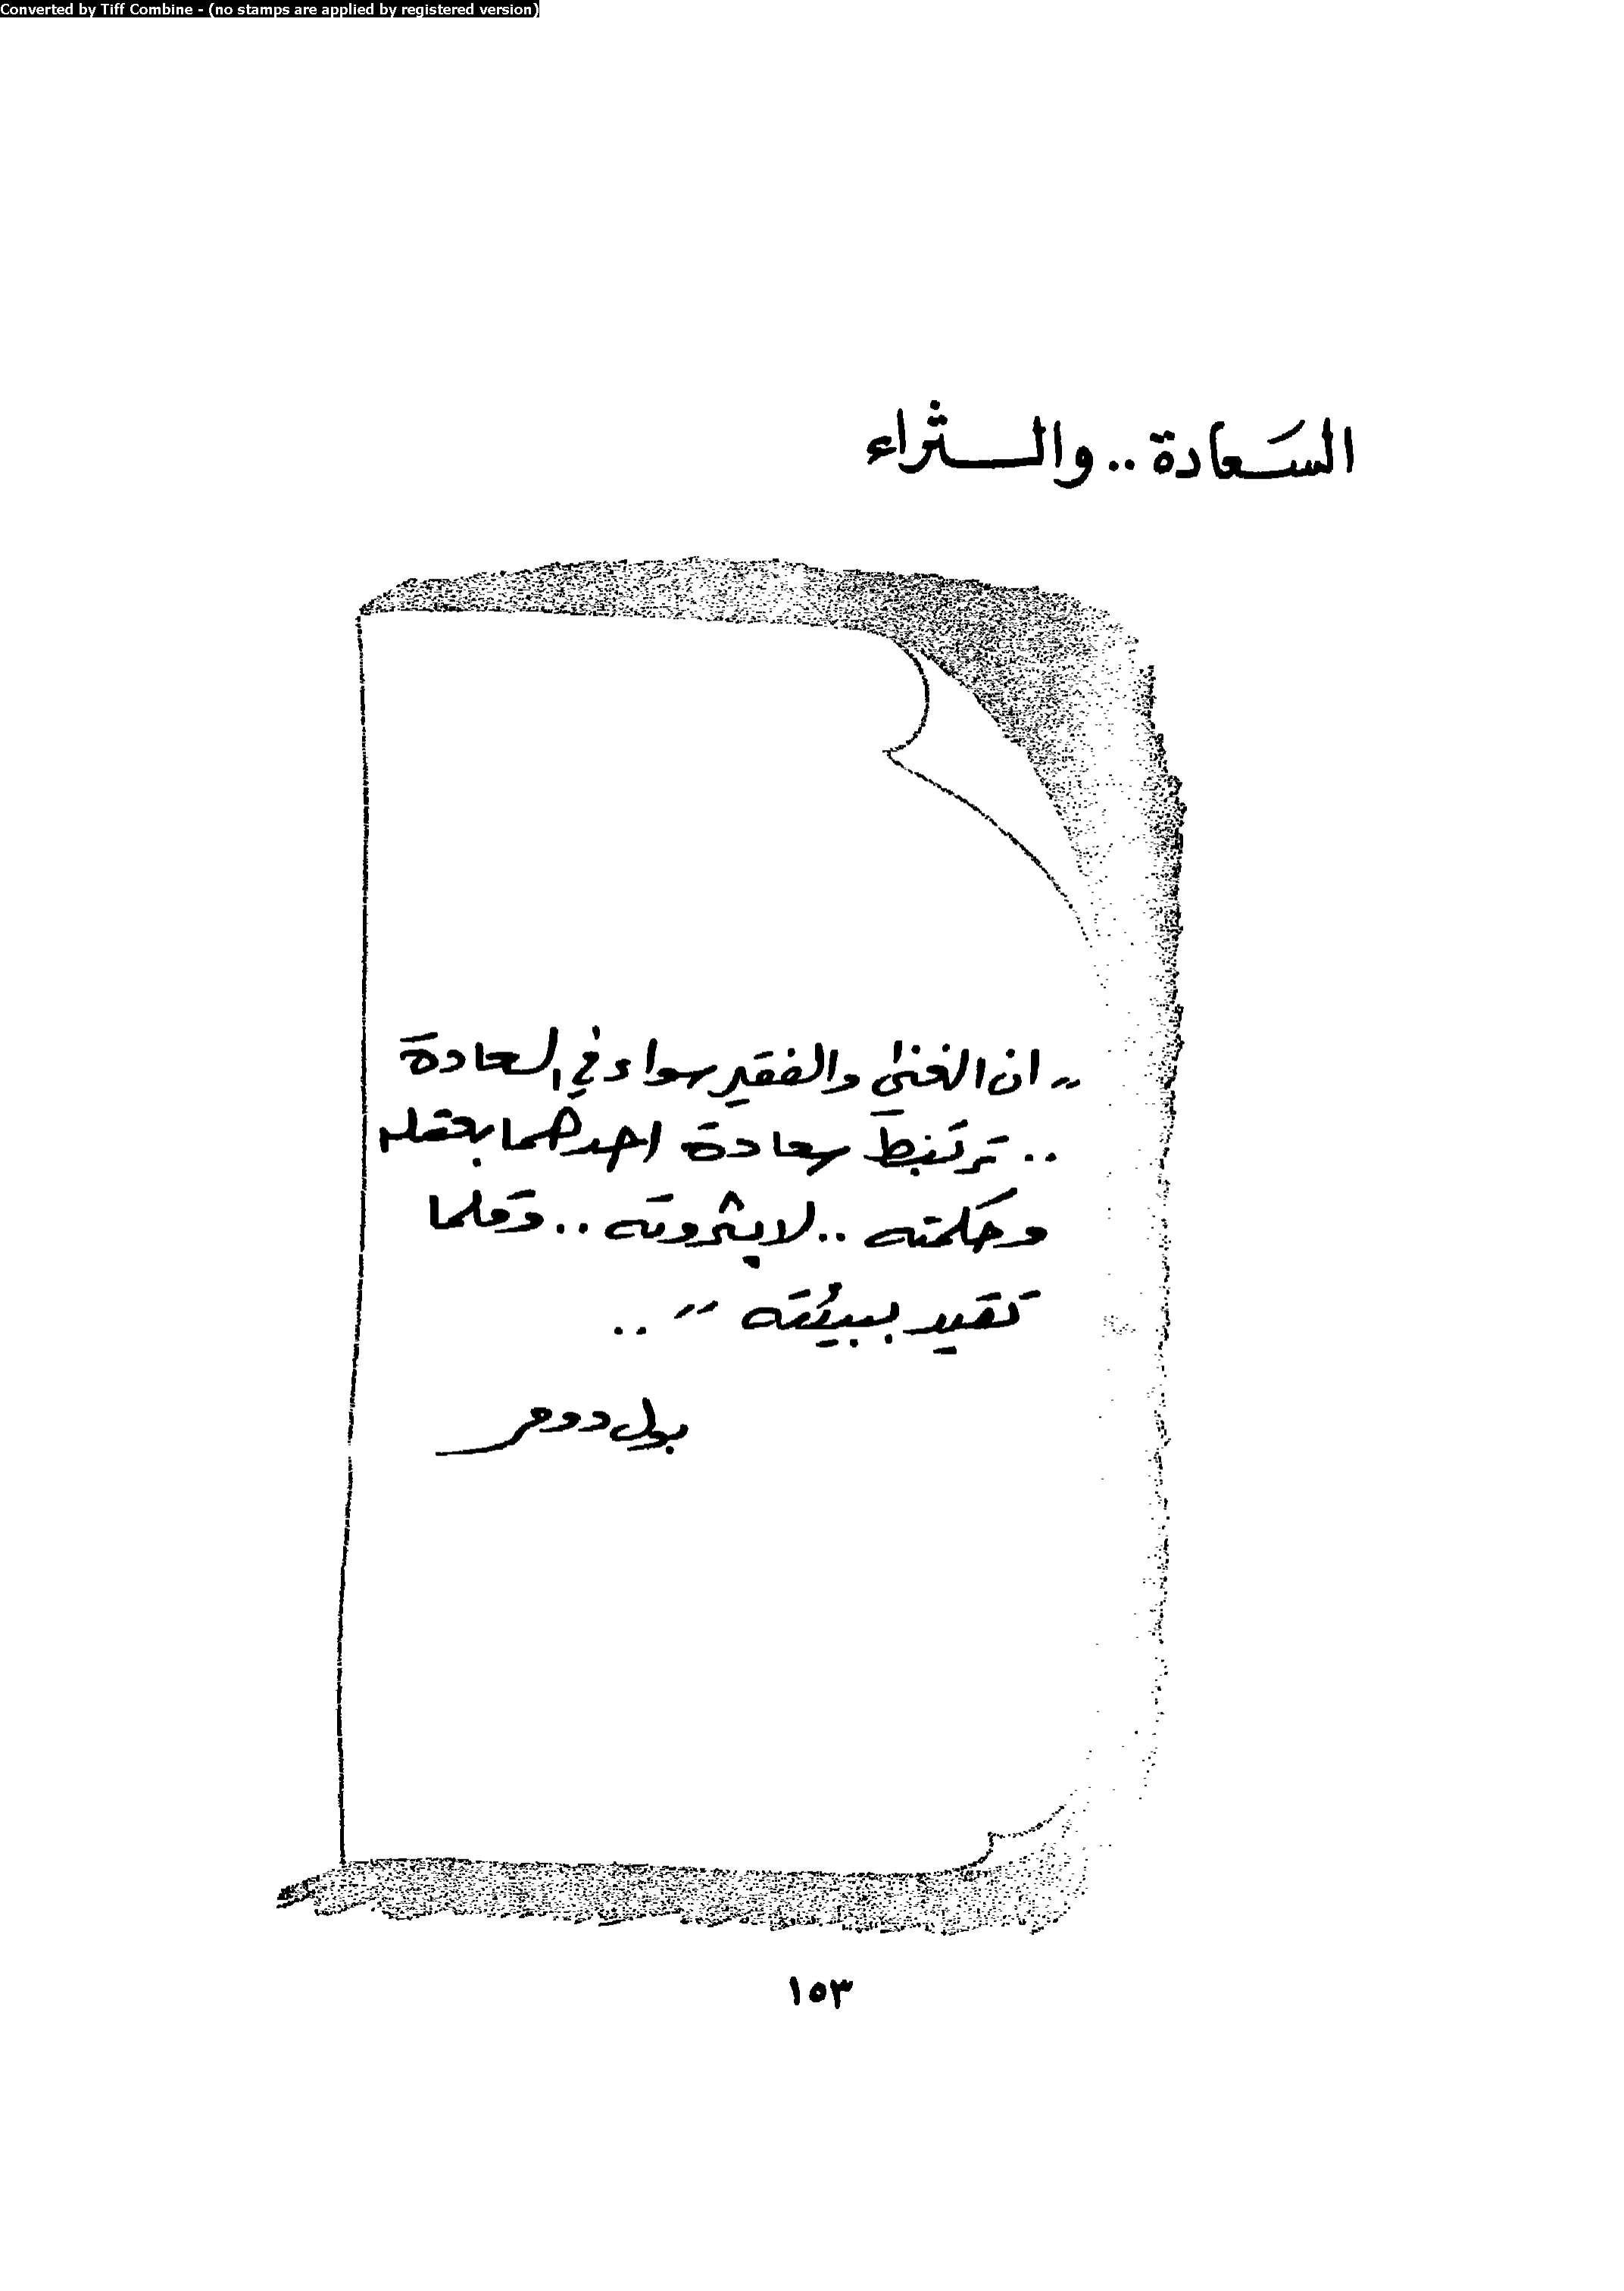 Converted by Tiff Combine - (no stamps are applied by registered version)
السعادة .. والثراء
" ان الغنى والفقير سواء في السعادة
.. ترتبط سعادة احدهما بعقله
وحكمته .. لا بثروته .. وقلما
تقيد ببيئته " ..
بول دومر
١٥٣